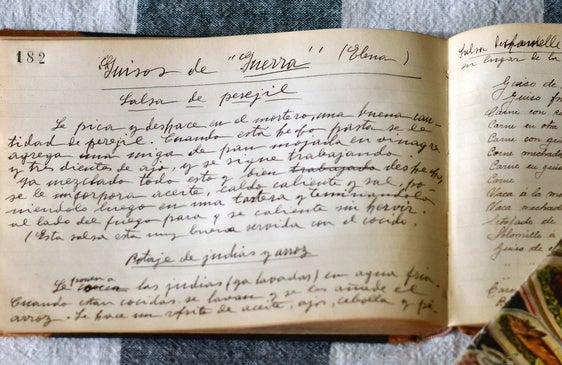 182
Guisos de "Guerra" (Elena)
Salsa de perejil
Se pica y deshace en el mortero, una buena can-
tidad de perejil. Cuando está hecho pasta se le
agrega una miga de pan mojada en vinagre
y tres dientes de ajo, y se sigue trabajando.
Ya mezclado todo esto y bien trabajado
se le incorpora aceite, caldo caliente y sal, po-
niéndolo luego en una tartera y
al lado del fuego para q se caliente sin hervir.
(Esta salsa está muy buena servida con el cocido.
Potaje de judías y arroz
Se ponen a cocer las judías (ya lavadas) en agua fría.
Cuando están cocidas se lavan y se les añade el
arroz. Se hace un refrito de aceite, ajos, cebolla y pi
Salsa
en lugar de la
Guiso de
Guiso
Carne con
Carne en
Carne con
Carne mechada
Carne en
Carne
Vaca a la
Vaca mechada
Estofado de
Solomillo
Guiso de